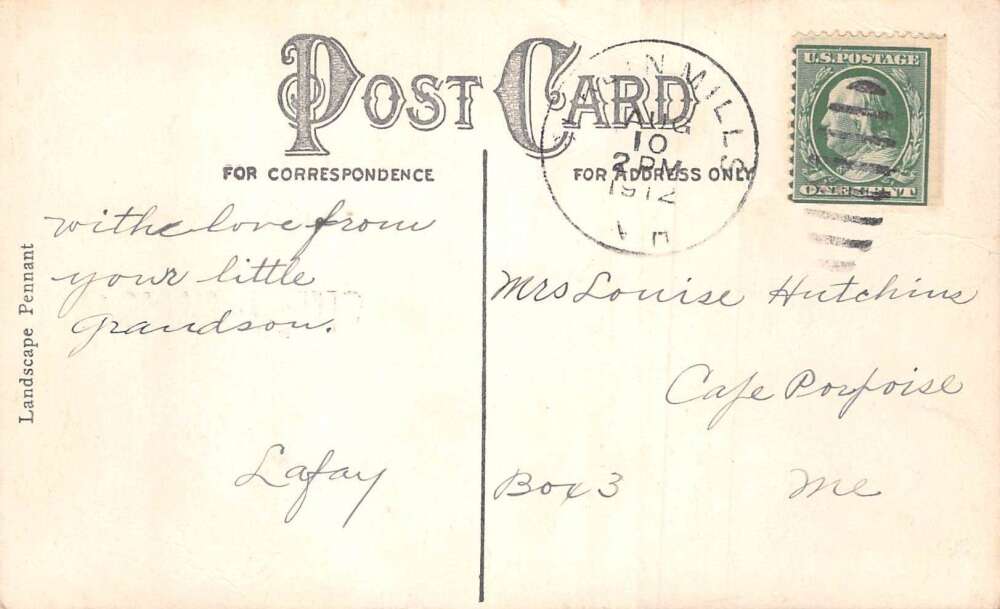 POST CARD
FOR CORRESPONDENCE
FOR ADDRESS ONLY
MILLS
AUG
10
2 PM
1912
U.S. POSTAGE
ONE CENT
Landscape Pennant
withe love from
your little
Grandson.
Lafay
Mrs Louise Hutchins
Cape Porpoise
Box 3 Me